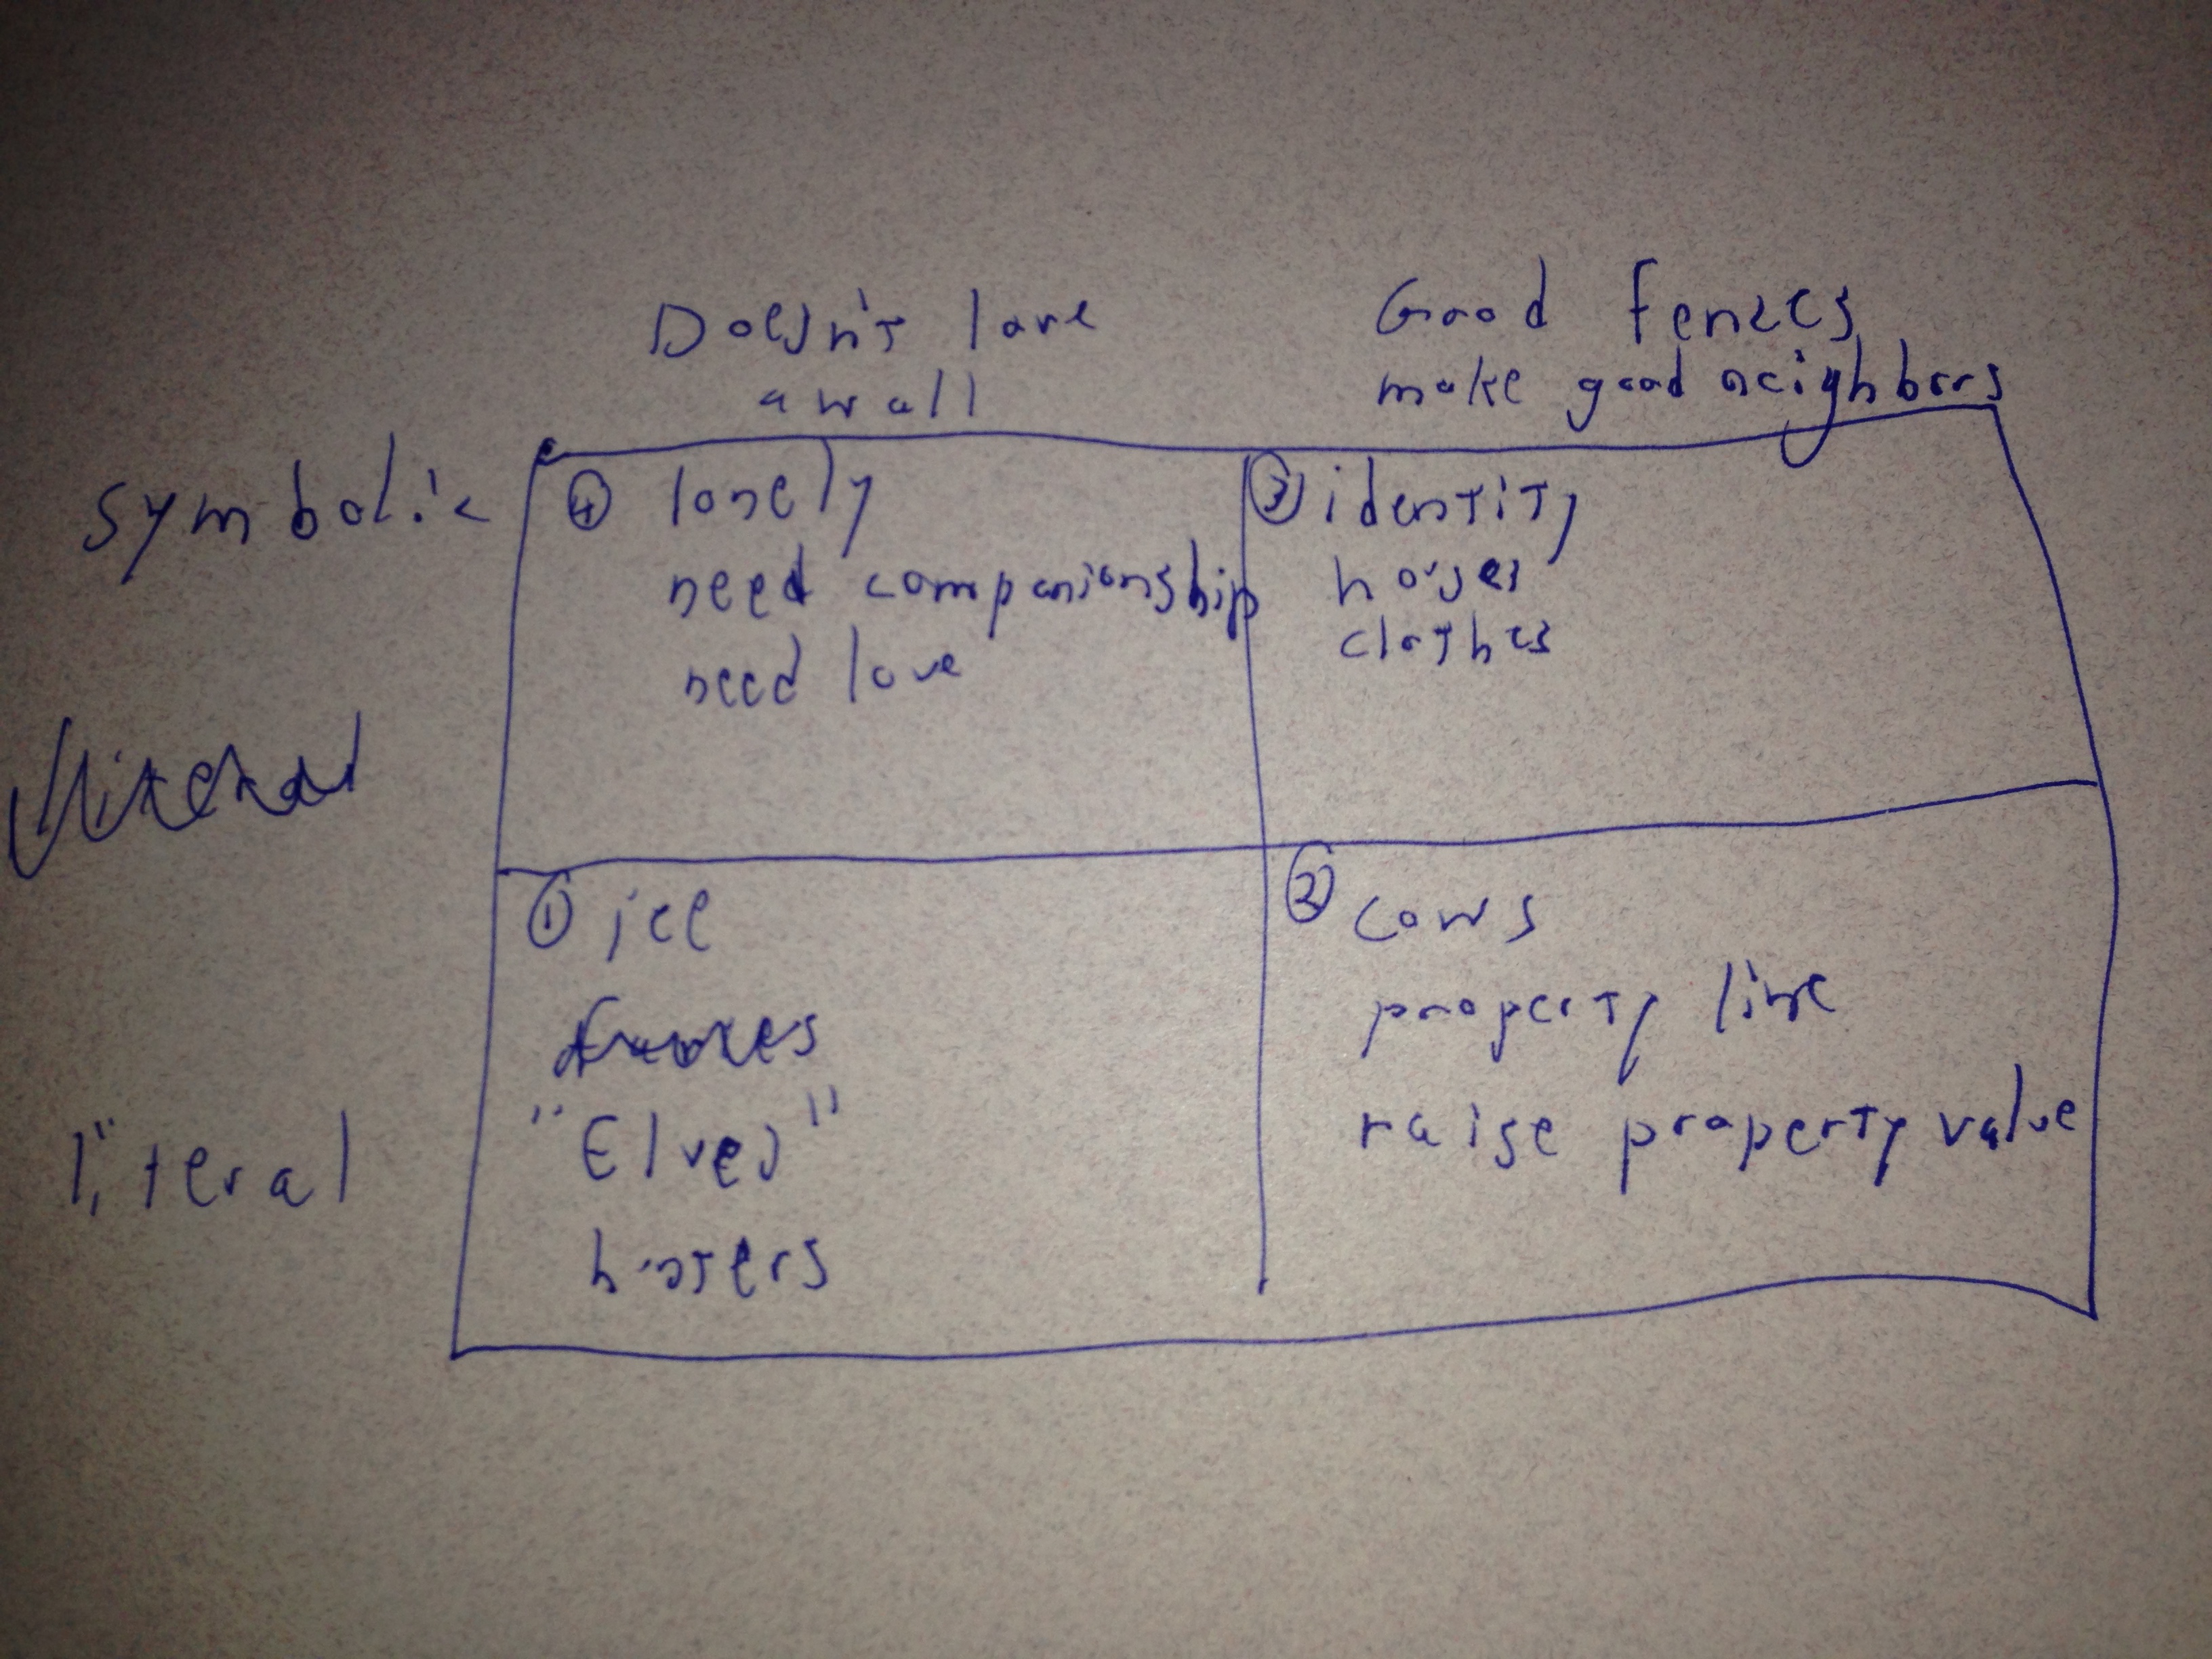 Doesn't love
a wall
Good fences
make good neighbors
symbolic
④ lonely
need companionship
need love
③ identity
houses
clothes
literal
① ice
"Elves"
hunters
② cows
property line
raise property value